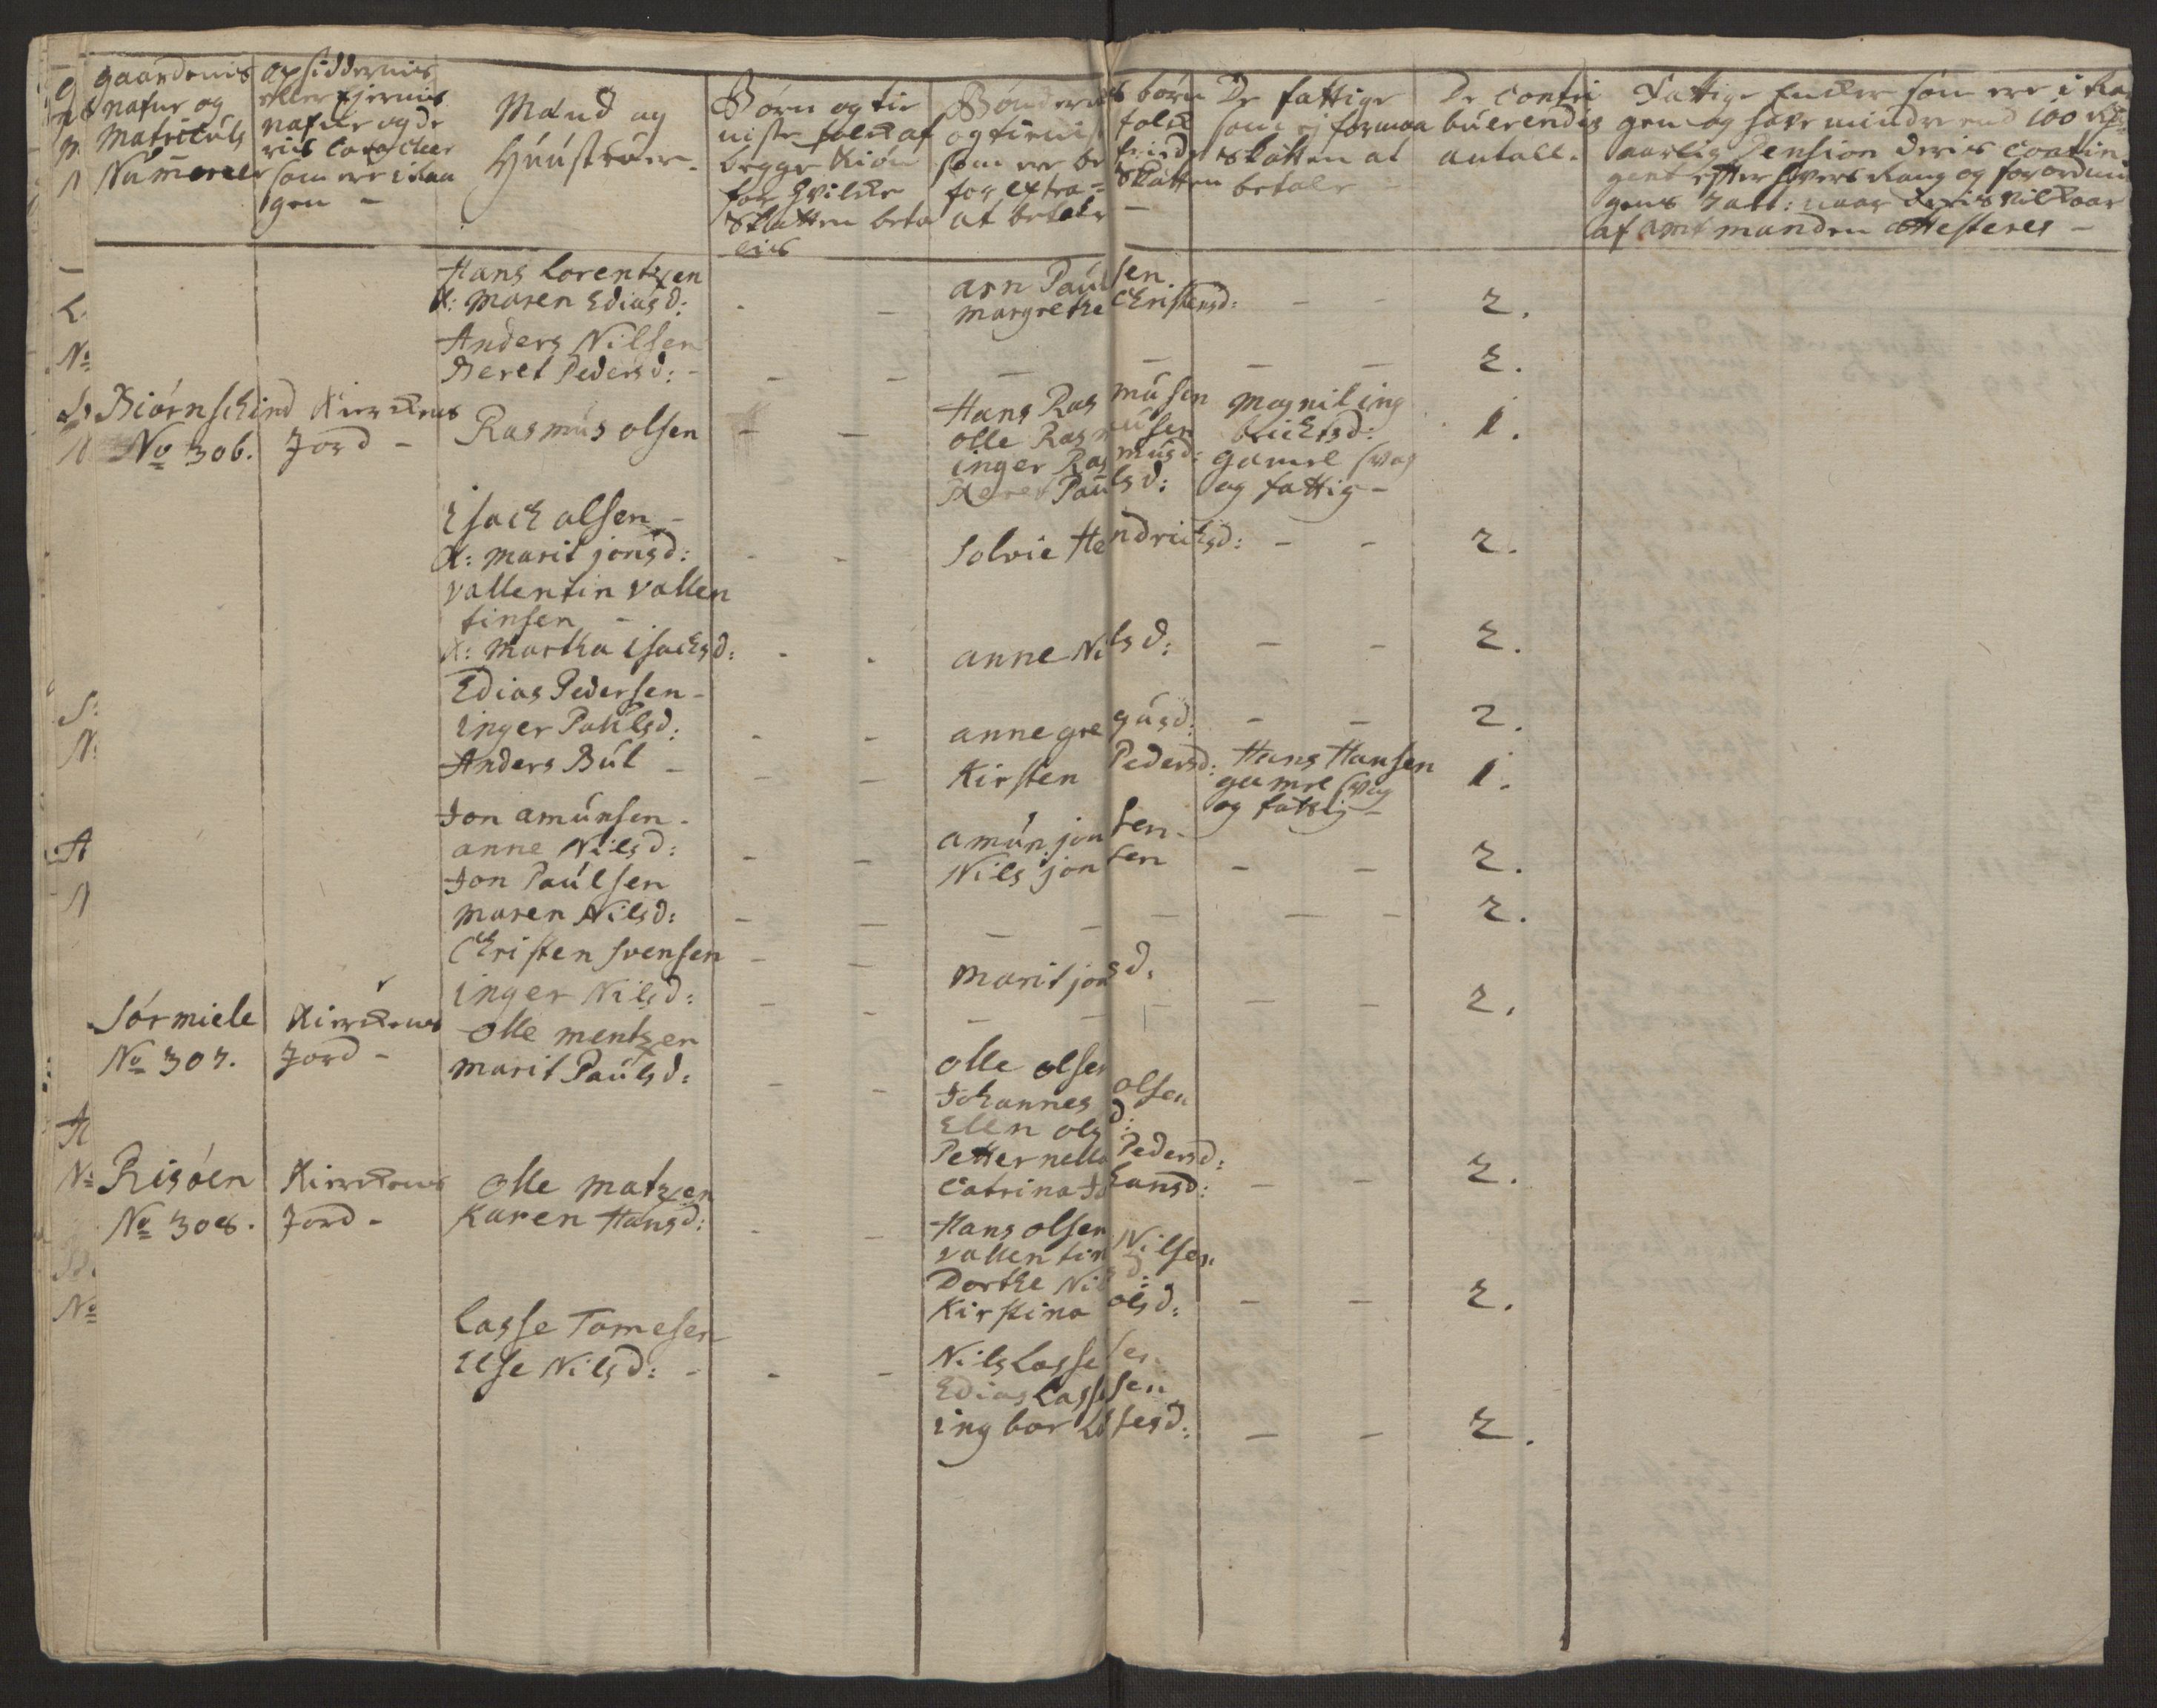 gaardenis
nafn og
Matriculs
Numerer
opsiddernis
eller ejernis
nafne og de
ris Caracteer
som ere i Raa
gen -
Mænd og
Hustruer -
Børn og tie
niste folck af
begge Kiøn
for hvilcke
Skatten beta
les
Bønderns børn
og tienist folck
som ere befriede
for Extra= Skatten
at betale -
De fattige
som ej formaa
Skatten at
betale -
De Contri
buerendis
antall.
Fattige Encker som ere i Ra
gen og have mindre end 100 rd
aarlig Pension deris Contin
gent efter hvers Rang og forordnin
gens Tab: naar deris vilckaar
af amtmanden attesteres -
Hans Lorentzen
K: Maren Ediasd:
arn Paulsen.
Margrethe Christensd: - - 2.
Anders Nilsen
Beret Pedersd: - - - - - - 2.
Biørnschind
No 306.
Kierckens
Jord -
Rasmus olsen - -
Hans Rasmusen
olle Rasmusen
inger Rasmusd:
Paulsd:
Magnil ing
brichtsd:
gamel svag
og fattig -
1.
Isach olsen -
K: Marit jonsd: - -
Solvie Hendrichsd: - - 2.
vallentin vallen
tinsen -
K: Martha isachsd: - -
anne Nilsd: - - 2.
Edias Pedersen -
inger Paulsd: - -
anne gregusd: - - 2.
Anders Bul - - -
Kirsten Pedersd:
Hans Hansen
gamel svag
og fattig -
1.
Jon amunsen -
anne Nilsd: - -
amun jonsen -
Nils jonsen - - 2.
Jon Paulsen
Maren Nilsd: - - - - - - - 2.
Christen svensen - -
inger Nilsd: -
Marit jonsd:
- - - 2.
Sørmiele
No 307.
Kierckens
Jord -
Olle mentzen
Marit Paulsd: - -
olle olsen
Johannes olsen
Ellen olsd:
Petternella Pedersd:
Catrina Johansd: - - 2.
Risøen
No 308.
Kierckens
Jord -
Olle Matzen
Karen Hansd: - -
Hans olsen
vallentin Nilsen
Dorthe Nilsd:
Kirstina olsd: - - 2.
Lasse Tomesen
Else Nilsd: - - -
Nils Lassesen
Edias Lassesen
ingbor Lassesd: - - 2.